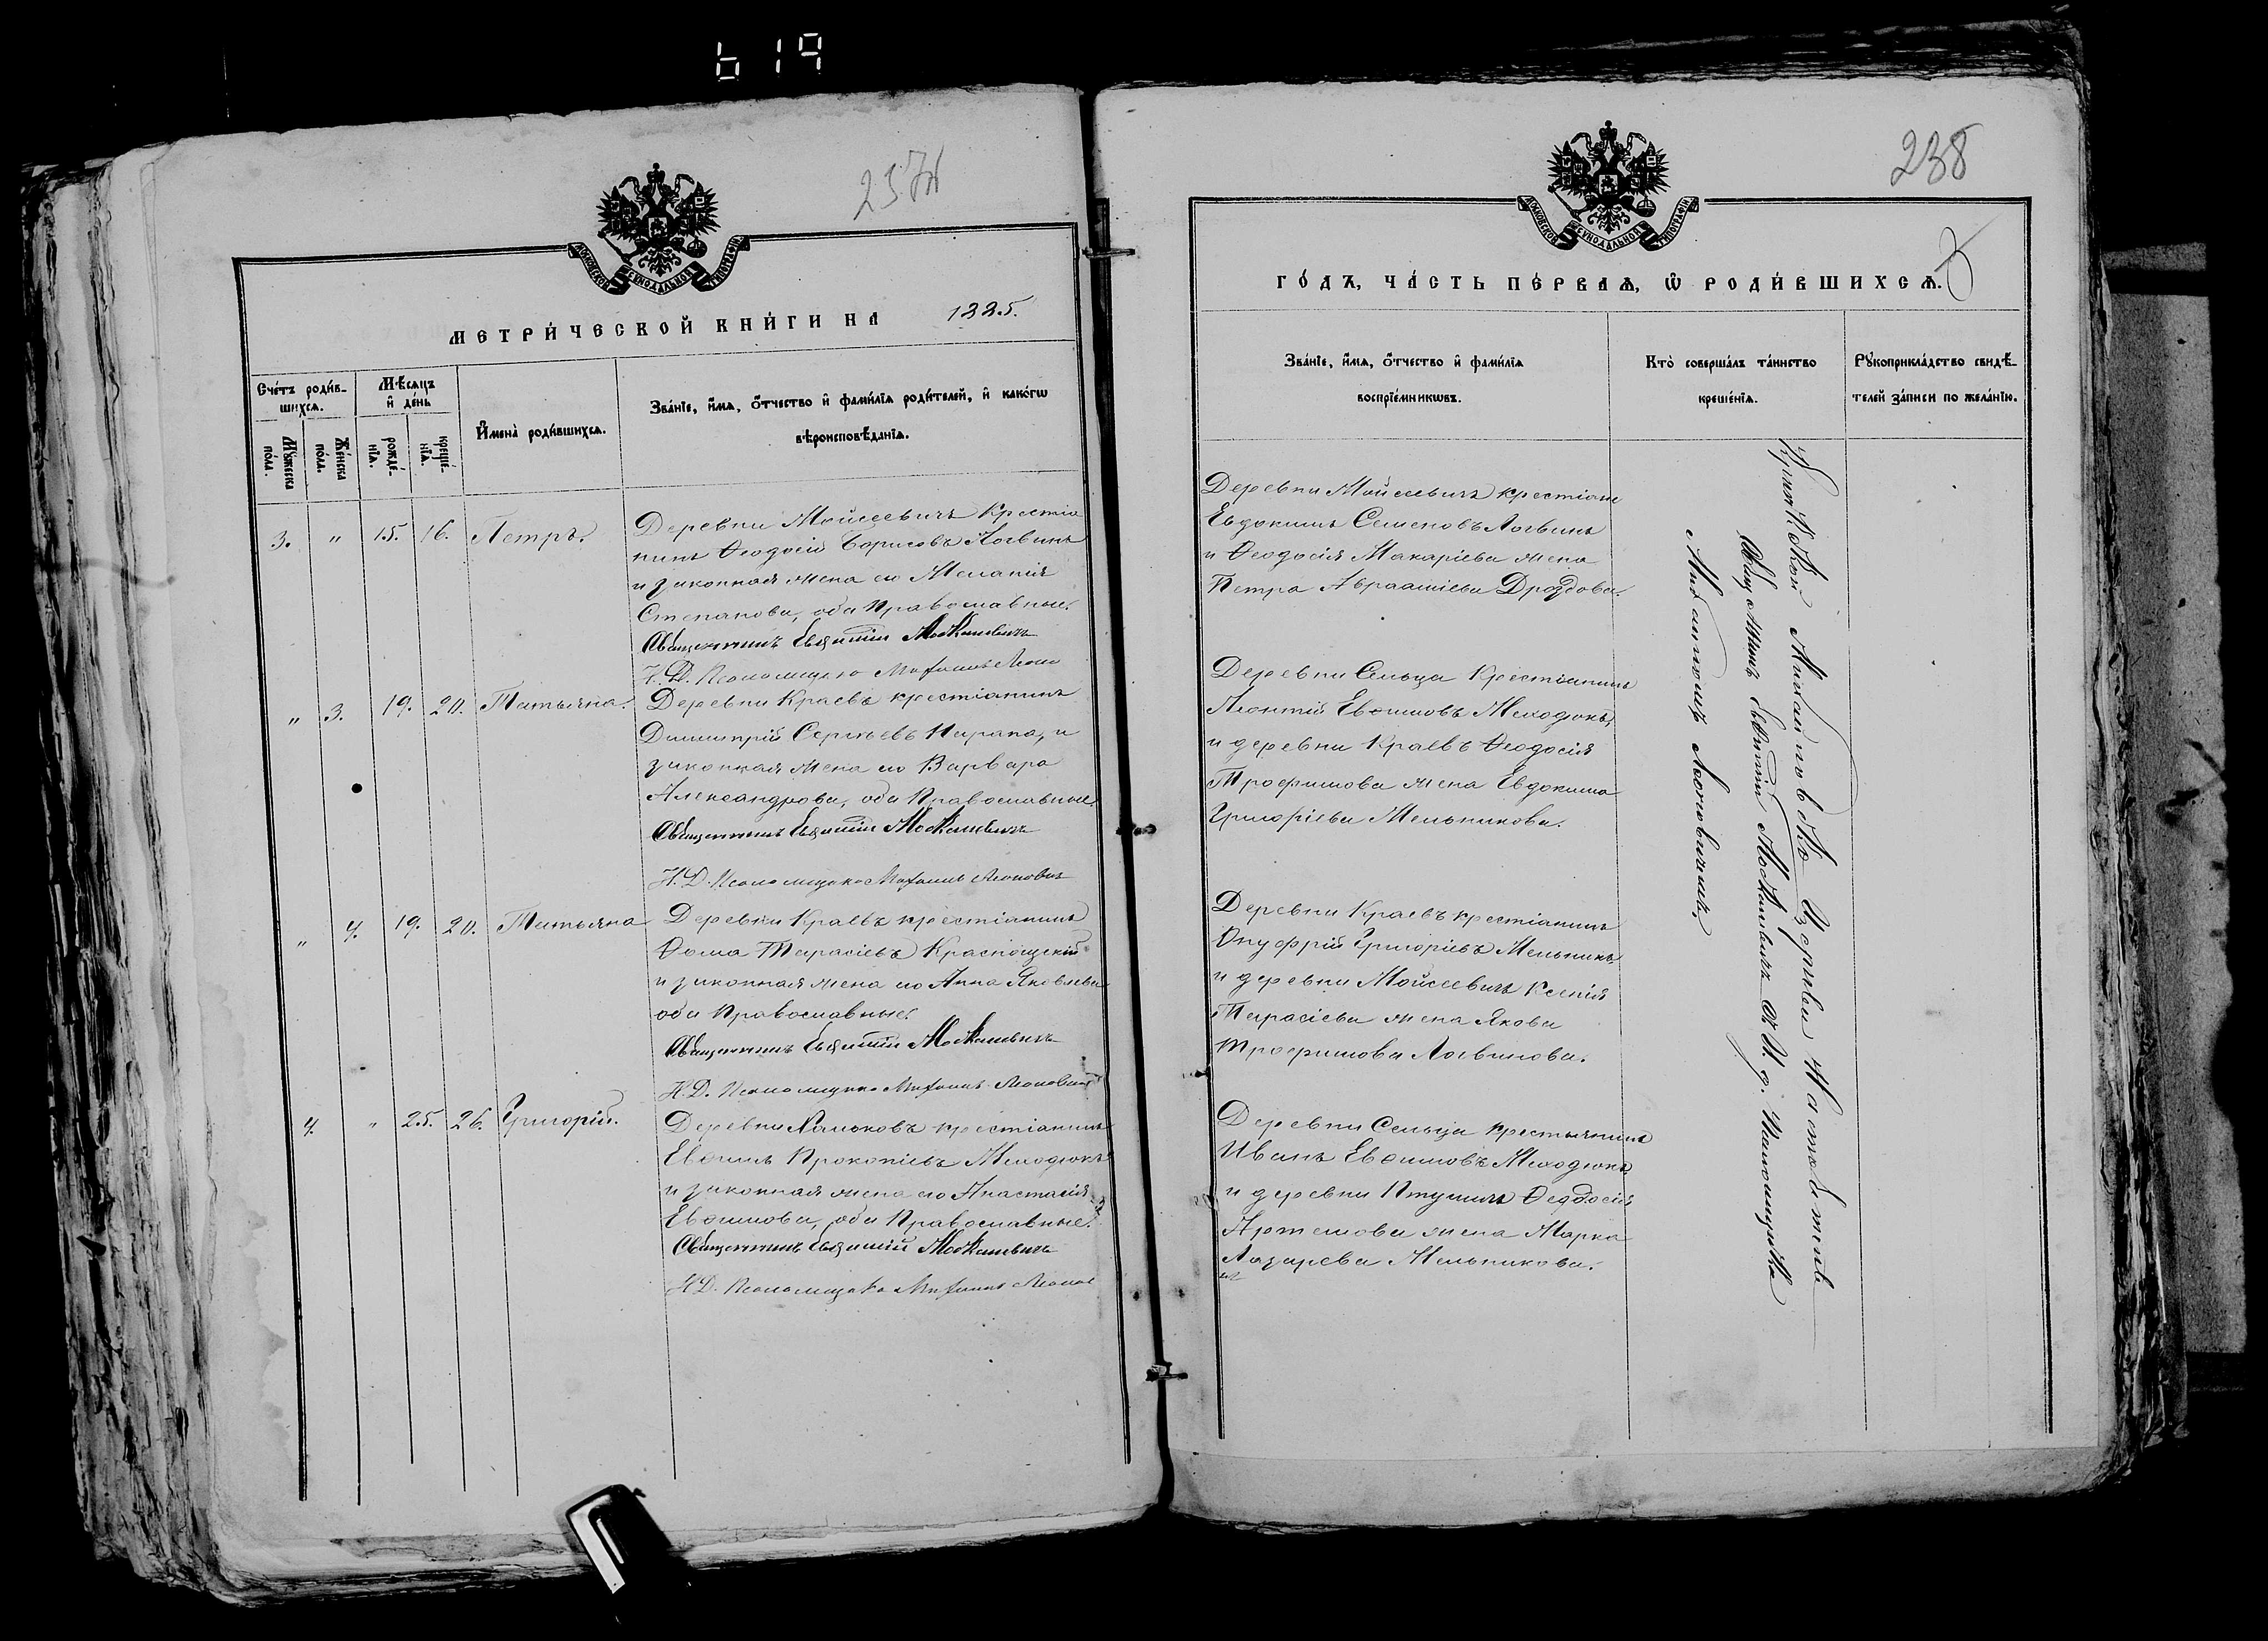 619
МОСКОВСКОЙ СѴНОДАЛЬНОЙ ТИПОГРАФІИ
МЕТРИ́ЧЕСКОЙ КНИ́ГИ НА 1885.
Сче́тъ роди́в-
шихсѧ.
Мѣ́сѧцъ
и҆ де́нь
Имена̀ роди́вшихсѧ.
Зва́нїе, и҆́мѧ, ѻ҆́тчество и҆ фами́лїѧ роди́телей, и҆ како́гѡ
вѣроисповѣ́данїѧ.
Мꙋ́жеска
по́ла.
Же́нска
по́ла.
рожде́-
нїѧ.
креще́-
нїѧ.
3. " 15. 16. Петръ.
Деревни Мойсеевичъ крестiа
нинъ Ѳеодосiй Борисовъ Логвинъ
и законная жена его Меланiя
Степанова, оба Православные.
Священникъ Евѳимiй Мошкевичъ
И. Д. Псаломщика
" 3. 19. 20. Татьяна.
Деревни Краевъ крестiанинъ
Димитрiй Сергѣевъ и
законная жена его Варвара
Александрова, оба Православные.
Священникъ Евѳимiй
И. Д. Псаломщика
" 4. 19. 20. Татьяна
Деревни Краевъ крестiанинъ
Ѳома Тарасiевъ
и законная жена его Анна Яковлева
оба Православные.
Священникъ Евѳимiй
И. Д. Псаломщика
4. " 25. 26. Григорiй.
Деревни крестiанинъ
Евѳимъ Прокопiевъ Мелодюкъ
и законная жена его Анастасiя
Евѳимова, оба Православные.
Священникъ Евѳимiй
И. Д. Псаломщика
238
МОСКОВСКОЙ СѴНОДАЛЬНОЙ ТИПОГРАФІИ
ГО́ДЪ, ЧА́СТЬ ПЕ́РВАѦ, Ѡ҆ РОДИ́ВШИХСѦ.
Зва́нїе, и҆́мѧ, ѻ҆́тчество и҆ фами́лїѧ
воспрїе́мникѡвъ.
Кто̀ соверша́лъ та́инство
креще́нїѧ.
Рꙋкоприкла́дство свидѣ́-
телей за́писи по жела́нїю.
Деревни Мойсеевичъ крестiане
Евдокимъ Семеновъ Логвинъ
и Ѳеодосiя Макарiева жена
Петра Авраамiева Дроздова.
Деревни Сельца крестiанинъ
Леонтiй Евѳимовъ Мелодюкъ,
и деревни Краевъ Ѳеодосiя
Трофимова жена Евдокима
Григорiева Мельникова.
Деревни Краевъ крестiанинъ
Онуфрiй Григорiевъ Мельникъ
и деревни Мойсеевичъ Ксенiя
Тарасiева жена Якова
Трофимова Логвинова.
Деревни Сельца крестьянинъ
Иванъ Евѳимовъ Мелодюкъ
и деревни Ѳеодосiя
Артемова жена Марка
Лазарева Мельникова.
Церкви Настоятель